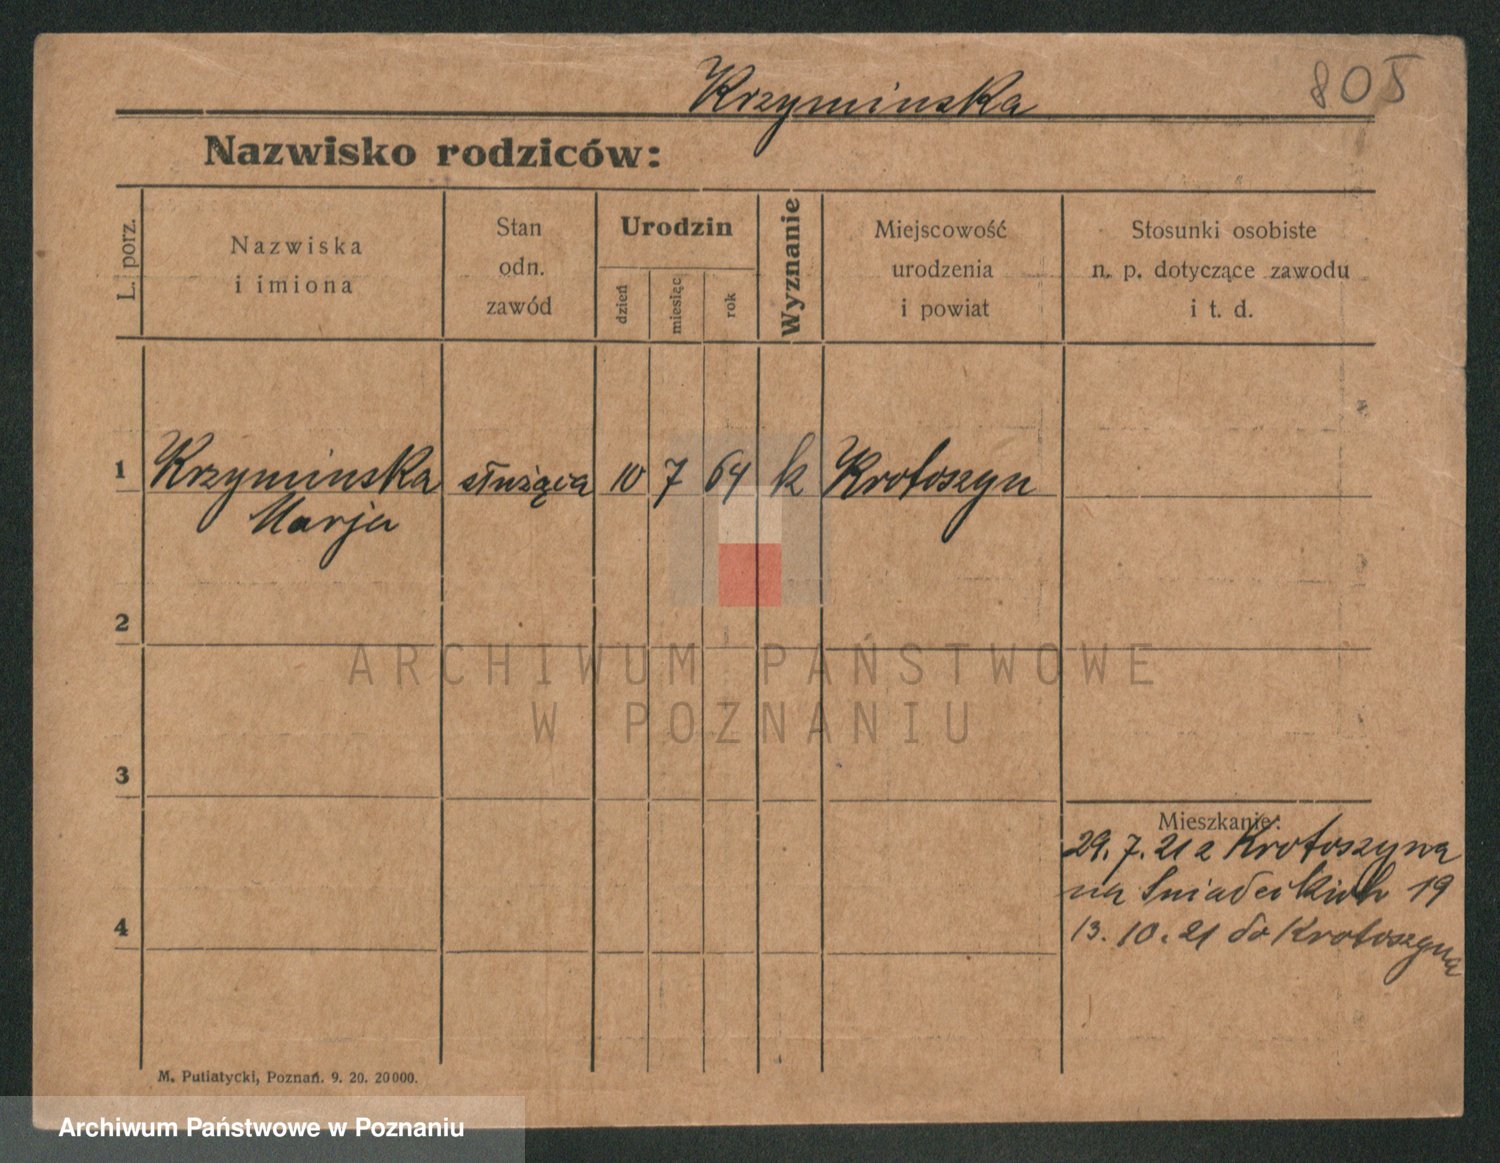 Krzyminska
805
Nazwisko rodziców:
L. porz.
Nazwiska
i imiona
Stan
odn.
zawód
Urodzin
dzień
miesiąc
rok
Wyznanie
Miejscowość
urodzenia
i powiat
Stosunki osobiste
n. p. dotyczące zawodu
i t. d.
1
Krzyminska
Marja
służąca
10
7
64
k
Krotoszyn
2
ARCHIWUM PAŃSTWOWE
W POZNANIU
3
Mieszkanie:
29. 7. 21 z Krotoszyna
na Sniadeckich 19
13. 10. 21 do Krotoszyna
4
M. Putiatycki, Poznań. 9. 20. 20000.
Archiwum Państwowe w Poznaniu